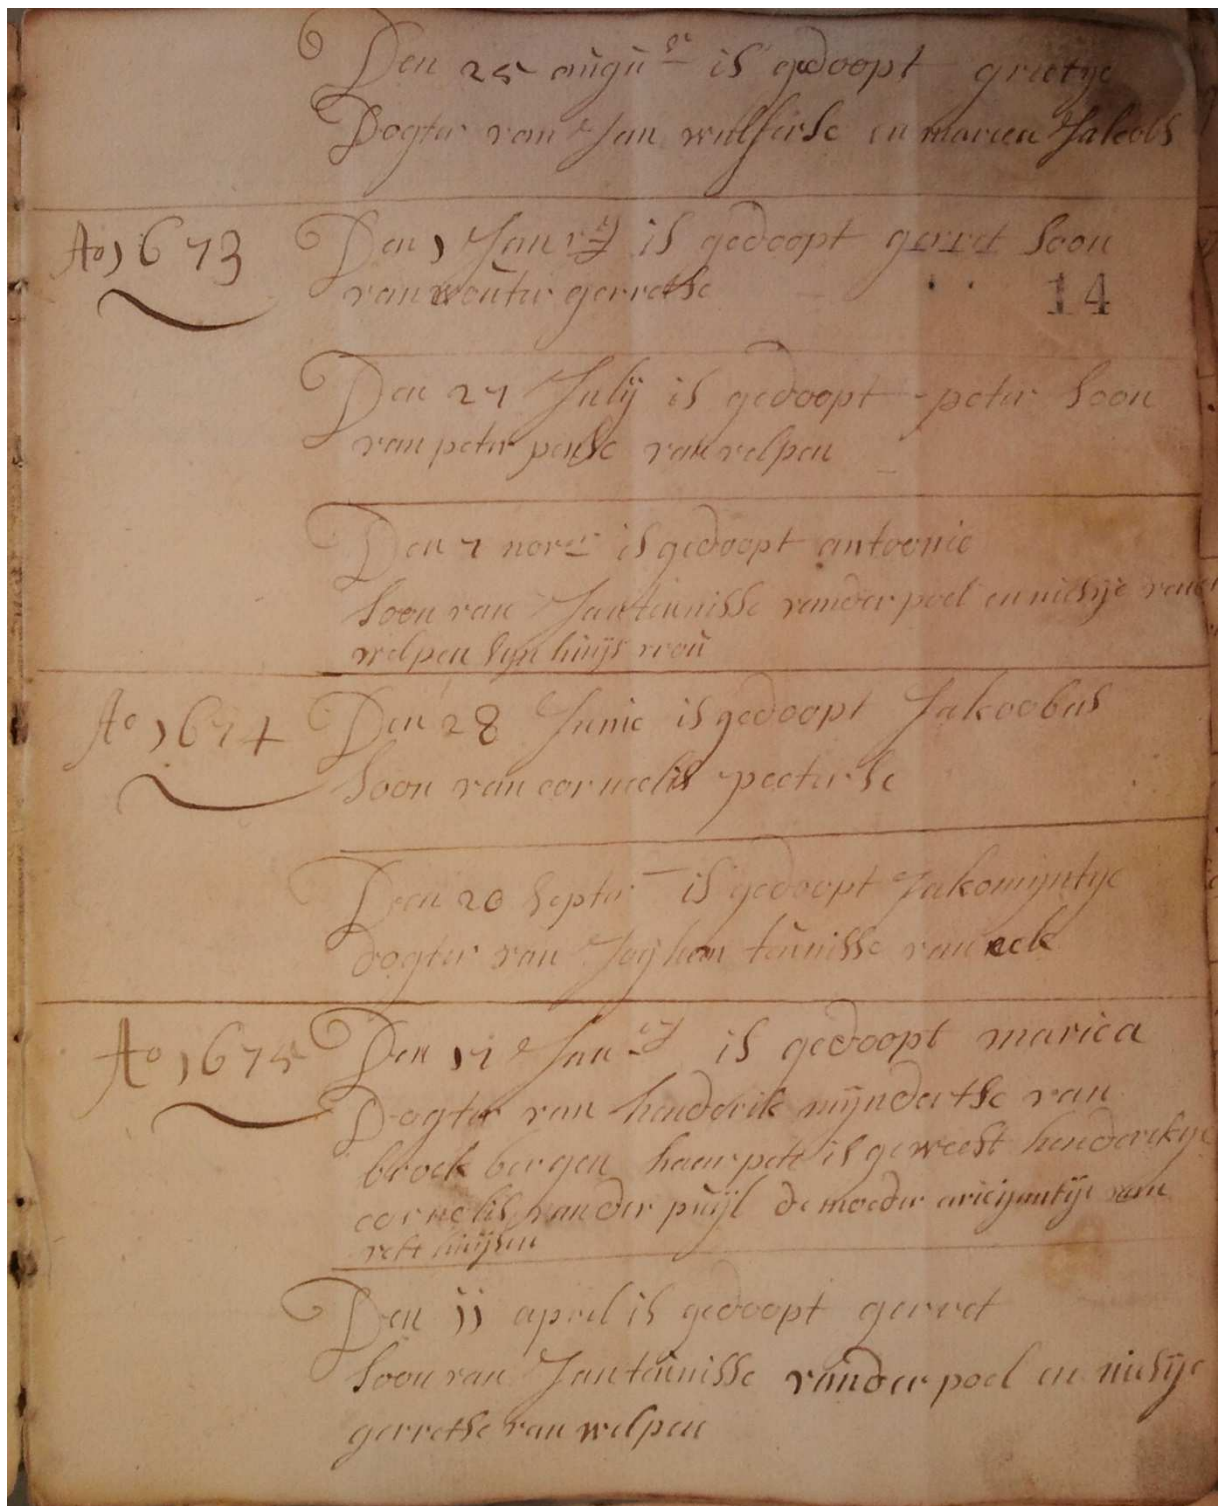 Den 25 augu st is gedoopt grietye
Dogter van Jan wulferse en marica Jakobs
Ao 1673 Den 1 Jan ry is gedoopt gerret soon
van wouter gerretse
14
Den 27 July is gedoopt peter soon
van peter pense van velpen
Den 7 nov er is gedoopt antoonie
soon van Jan teunisse vander poel en niesije van
welpen syn huijs vrou
Ao 1674 Den 28 Junie is gedoopt Jakoobus
soon van cornelis peeterse
Den 20 septer is gedoopt Jakomyntye
dogter van Joghem teunisse van eek
Ao 1675 Den 17 Jan ry is gedoopt marica
Dogter van henderik mijndertse van
broek bergen haer pete is geweest henderekye
cornelis vander puijl de moeder van
velt huijsen
Den 11 april is gedoopt gerret
soon van Jan teunisse vander poel en niesije
gerretse van welpen